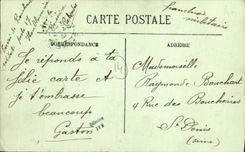 franchise
militaire
CARTE POSTALE
CORRESPONDANCE
ADRESSE
Je réponds a ta
jolie carte et
je t'embrasse
beaucoup
Gaston
Mademoiselle
Raymonde Bouchart
4 Rue des Boucheries
St Denis
(Seine)